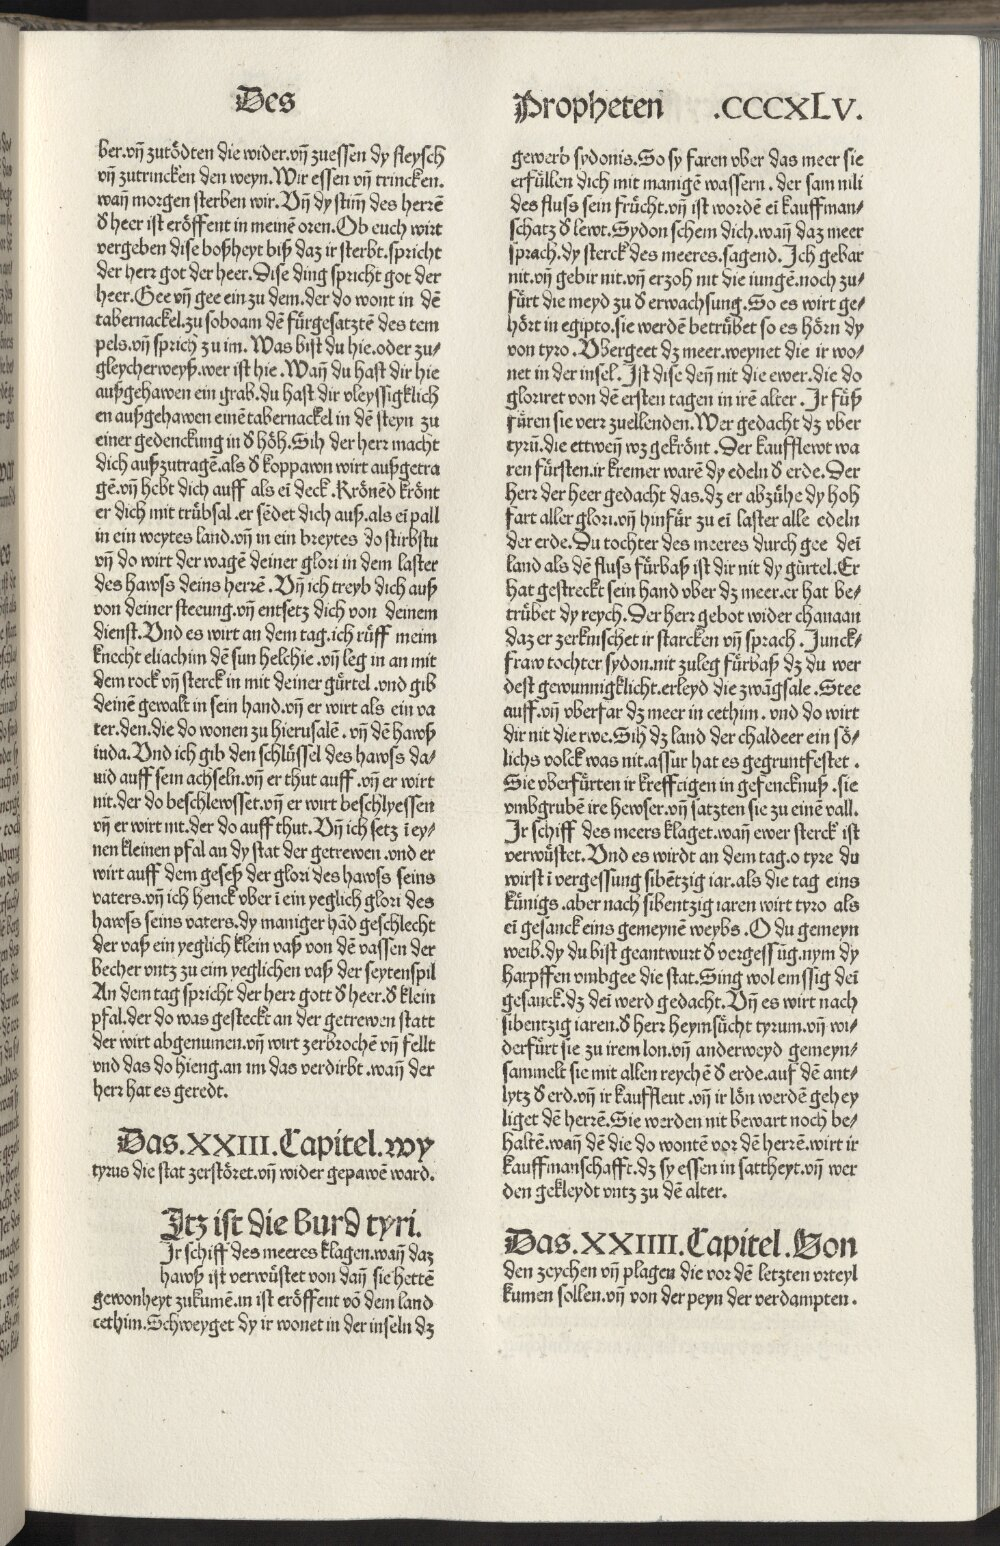 Des
ber.vñ zutödten die wider.vñ zuessen dy fleysch
vñ zutrincken den weyn.Wir essen vñ trincken.
wañ morgen sterben wir.Vñ dy stim̃ des herrẽ
đ heer ist eröffent in meinẽ oren.Ob euch wirt
vergeben dise boßheyt biß daz ir sterbt.spricht
der herr got der heer.Dise ding spricht got der
heer.Gee vñ gee ein zu dem.der do wont in dẽ
tabernackel.zu soboam dẽ fürgesatztẽ des tem
pels.vñ sprich zu im. Was bist du hie.oder zu⸗
gleycherweyß.wer ist hie .Wañ du hast dir hie
außgehawen ein grab.du hast dir vleyssigklich
en außgehawen einẽ tabernackel in dẽ steyn zu
einer gedenckung in đ höh.Sih der herr macht
dich außzutragẽ.als đ koppawn wirt außgetra
gẽ.vñ hebt dich auff als eĩ deck .Krönẽd krönt
er dich mit trübsal .er sẽdet dich auß.als eĩ pall
in ein weytes land.vñ in ein breytes do stirbstu
vñ do wirt der wagẽ deiner glori in dem laster
des hawss deins herrẽ .Vñ ich treyb dich auß
von deiner steeung.vñ entsetz dich von deinem
dienst.Vnd es wirt an dem tag.ich rüff meim
knecht eliachim dẽ sun helchie .vñ leg in an mit
dem rock vñ sterck in mit deiner gürtel .vnd gib
deinẽ gewalt in sein hand.vñ er wirt als ein va
ter.den.die do wonen zu hierusalẽ . vñ dẽ hawß
iuda.Vnd ich gib den schlüssel des hawss da⸗
uid auff sein achseln.vñ er thut auff .vñ er wirt
nit.der do beschlewsset.vñ er wirt beschlyessen
vñ er wirt nit.der do auff thut.Vñ ich setz ĩ ey⸗
nen kleinen pfal an dy stat der getrewen .vnd er
wirt auff dem geseß der glori des hawss seins
vaters.vñ ich henck vber ĩ ein yeglich glori des
hawss seins vaters.dy maniger hãd geschlecht
der vaß ein yeglich klein vaß von dẽ vassen der
becher vntz zu eim yeglichen vaß der seytenspil
An dem tag spricht der herr gott đ heer.đ klein
pfal.der do was gesteckt an der getrewen statt
der wirt abgenumen.vñ wirt zerbrochẽ vñ fellt
vnd das do hieng.an im das verdirbt .wañ der
herr hat es geredt.
Das.XXIII.Capitel.wy
tyrus die stat zerstöret.vñ wider gepawẽ ward.
Itz ist die Burd tyri.
Ir schiff des meeres klagen.wañ daz
hawß ist verwüstet von dañ sie hettẽ
gewonheyt zukumẽ.in ist eröffent võ dem land
cethim.Schweyget dy ir wonet in der inseln dʒ
Propheten .CCCXLV.
gewerb sydonis.So sy faren vber das meer sie
erfüllen dich mit manigẽ wassern . der sam nili
des fluss sein frücht.vñ ist wordẽ eĩ kauffman⸗
schatz đ lewt.Sydon schem dich.wañ daz meer
sprach.dy sterck des meeres.sagend. Ich gebar
nit.vñ gebir nit.vñ erzoh nit die iungẽ.noch zu⸗
fürt die meyd zu đ erwachsung.So es wirt ge⸗
hört in egipto.sie werdẽ betrübet so es hörn dy
von tyro .Vbergeet dʒ meer.weynet die ir wo⸗
net in der insel. Ist dise deñ nit die ewer.die do
gloriret von dẽ ersten tagen in irẽ alter . Ir füß
füren sie verr zuellenden.Wer gedacht dʒ vber
tyrũ.die ettweñ wʒ gekrönt .Der kaufflewt wa
ren fürsten.ir kremer warẽ dy edeln đ erde.Der
herr der heer gedacht das.dʒ er abzühe dy hoh
fart aller glori.vñ hinfür zu eĩ laster alle edeln
der erde.Du tochter des meeres durch gee deĩ
land als dẽ fluss fürbaß ist dir nit dy gürtel.Er
hat gestreckt sein hand vber dʒ meer.er hat be⸗
trübet dy reych.Der herr gebot wider chanaan
daz er zerknischet ir starcken vñ sprach .Junck⸗
fraw tochter sydon.nit zuleg fürbaß dʒ du wer
dest gewunnigklicht.erleyd die zwãgsale .Stee
auff.vñ vberfar dʒ meer in cethim . vnd do wirt
dir nit die rwe.Sih dʒ land der chaldeer ein sö⸗
lichs volck was nit.assur hat es gegruntfestet .
Sie vberfürten ir krefftigen in gefencknuß .sie
vmbgrubẽ ire hewser.vñ satzten sie zu einẽ vall.
Ir schiff des meers klaget.wañ ewer sterck ist
verwüstet.Vnd es wirdt an dem tag.o tyre du
wirst ĩ vergessung sibẽtzig iar.als die tag eins
künigs .aber nach sibentzig iaren wirt tyro als
eĩ gesanck eins gemeynẽ weybs .O du gemeyn
weib.dy du bist geantwurt đ vergessũg.nym dy
harpffen vmbgee die stat.Sing wol emssig deĩ
gesanck.dʒ deĩ werd gedacht.Vñ es wirt nach
sibentzig iaren.đ herr heymsücht tyrum.vñ wi⸗
derfürt sie zu irem lon.vñ anderweyd gemeyn⸗
sammelt sie mit allen reychẽ đ erde.auf dẽ ant⸗
lytz đ erd.vñ ir kauffleut .vñ ir lön werdẽ gehey
liget dẽ herrẽ.Sie werden nit bewart noch be⸗
haltẽ.wañ dẽ die do wontẽ vor dẽ herrẽ.wirt ir
kauffmanschafft.dʒ sy essen in sattheyt.vñ wer
den gekleydt vntz zu dẽ alter.
Das.XXIIII.Capitel.Von
den zeychen vñ plagen die vor dẽ letzten vrteyl
kumen sollen.vñ von der peyn der verdampten .